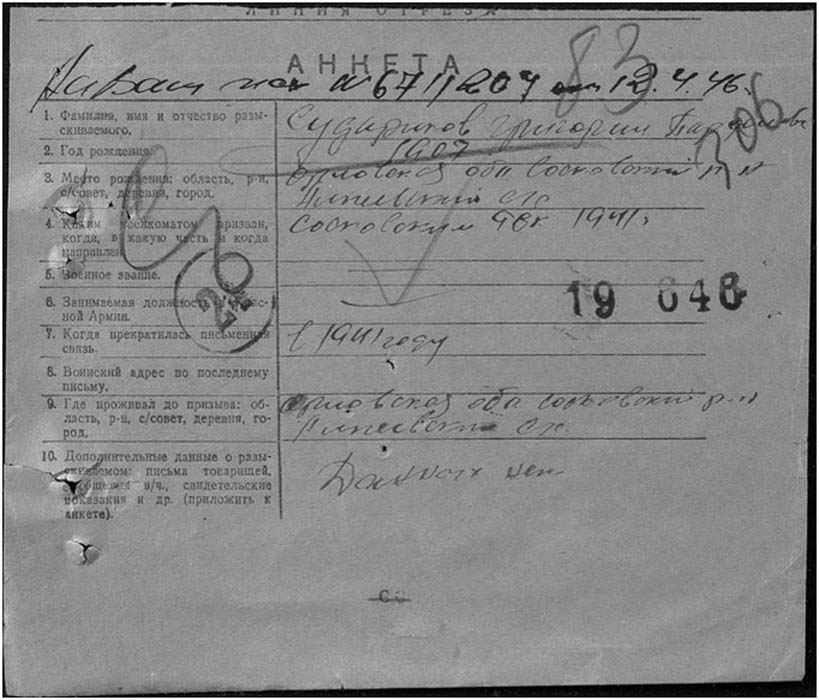 ЛИНИЯ ОТРЕЗА
АНКЕТА
На Ваш исх № 6711207 от 12.4.46г.
83
306
1. Фамилия, имя и отчество разы-
скиваемого.
Судариков Григорий
2. Год рождения.
1907
3. Место рождения: область, р-н,
с/совет, деревня, город.
Орловская обл Сосковский р-н
с/с
4. Каким военкоматом призван,
когда, в какую часть и когда
направлен.
Сосковским РВК 1941г
5. Военное звание.
6. Занимаемая должность в Крас-
ной Армии.
20
19 646
7. Когда прекратилась письменная
связь.
в 1941 году
8. Воинский адрес по последнему
письму.
9. Где проживал до призыва: об-
ласть, р-н, с/совет, деревня, го-
род.
Орловская обл Сосковский р-н
с/с.
10. Дополнительные данные о разы-
скиваемом: письма товарищей,
сообщения в/ч., свидетельские
показания и др. (приложить к
анкете).
Данных нет